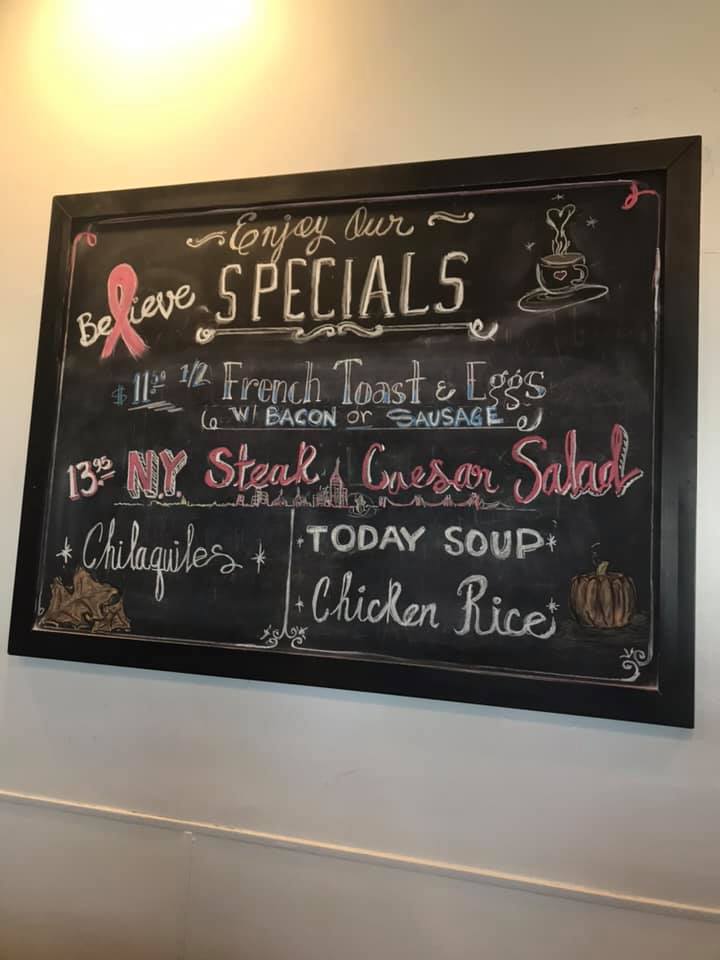 Enjoy Our
Believe
SPECIALS
$ 11.50 1/2 French Toast & Eggs
W/ BACON or SAUSAGE
13.95 N.Y. Steak Caesar Salad
Chilaquiles
TODAY SOUP
Chicken Rice